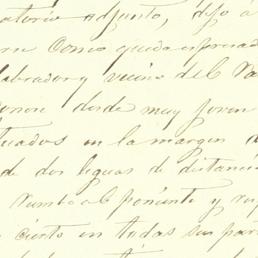 atorio adjunto, dejo á
Como queda espresad
labrador y vecino del Va
desde muy joven
tuados en la margen
de dos leguas de distanci
rumbo al poniente y
cierto en todas sus par